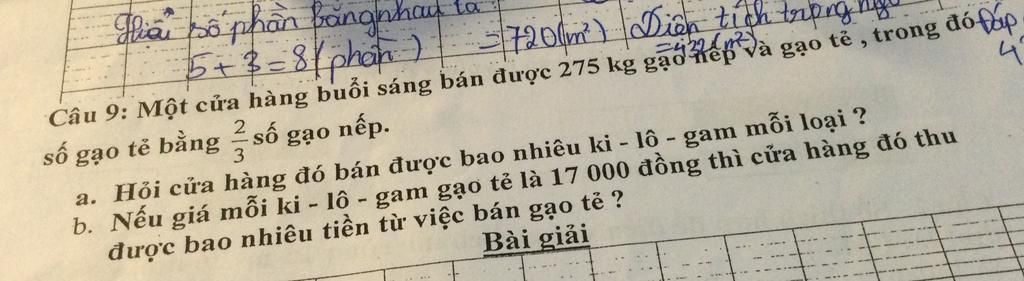 số phần bằng nhau
5 + 3 = 8 (phần)
= 720 (m²) Diện tích trồng
Câu 9: Một cửa hàng buổi sáng bán được 275 kg gạo nếp và gạo tẻ , trong đó
số gạo tẻ bằng 2/3 số gạo nếp.
a. Hỏi cửa hàng đó bán được bao nhiêu ki - lô - gam mỗi loại ?
b. Nếu giá mỗi ki - lô - gam gạo tẻ là 17 000 đồng thì cửa hàng đó thu
được bao nhiêu tiền từ việc bán gạo tẻ ?
Bài giải